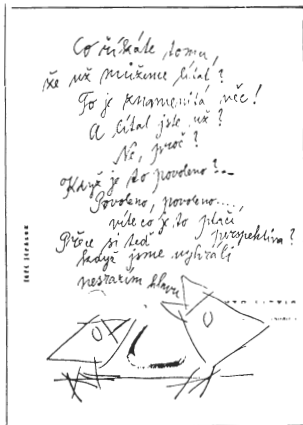 Co říkáte tomu,
že už můžeme lítat?
To je znamenitá věc!
A lítal jste už?
Ne, proč?
Když je to povoleno?...
Povoleno, povoleno....,
víte co je to ptačí
perspektiva?
Přece si teď
když jsme vyhráli
nesrazím hlavu